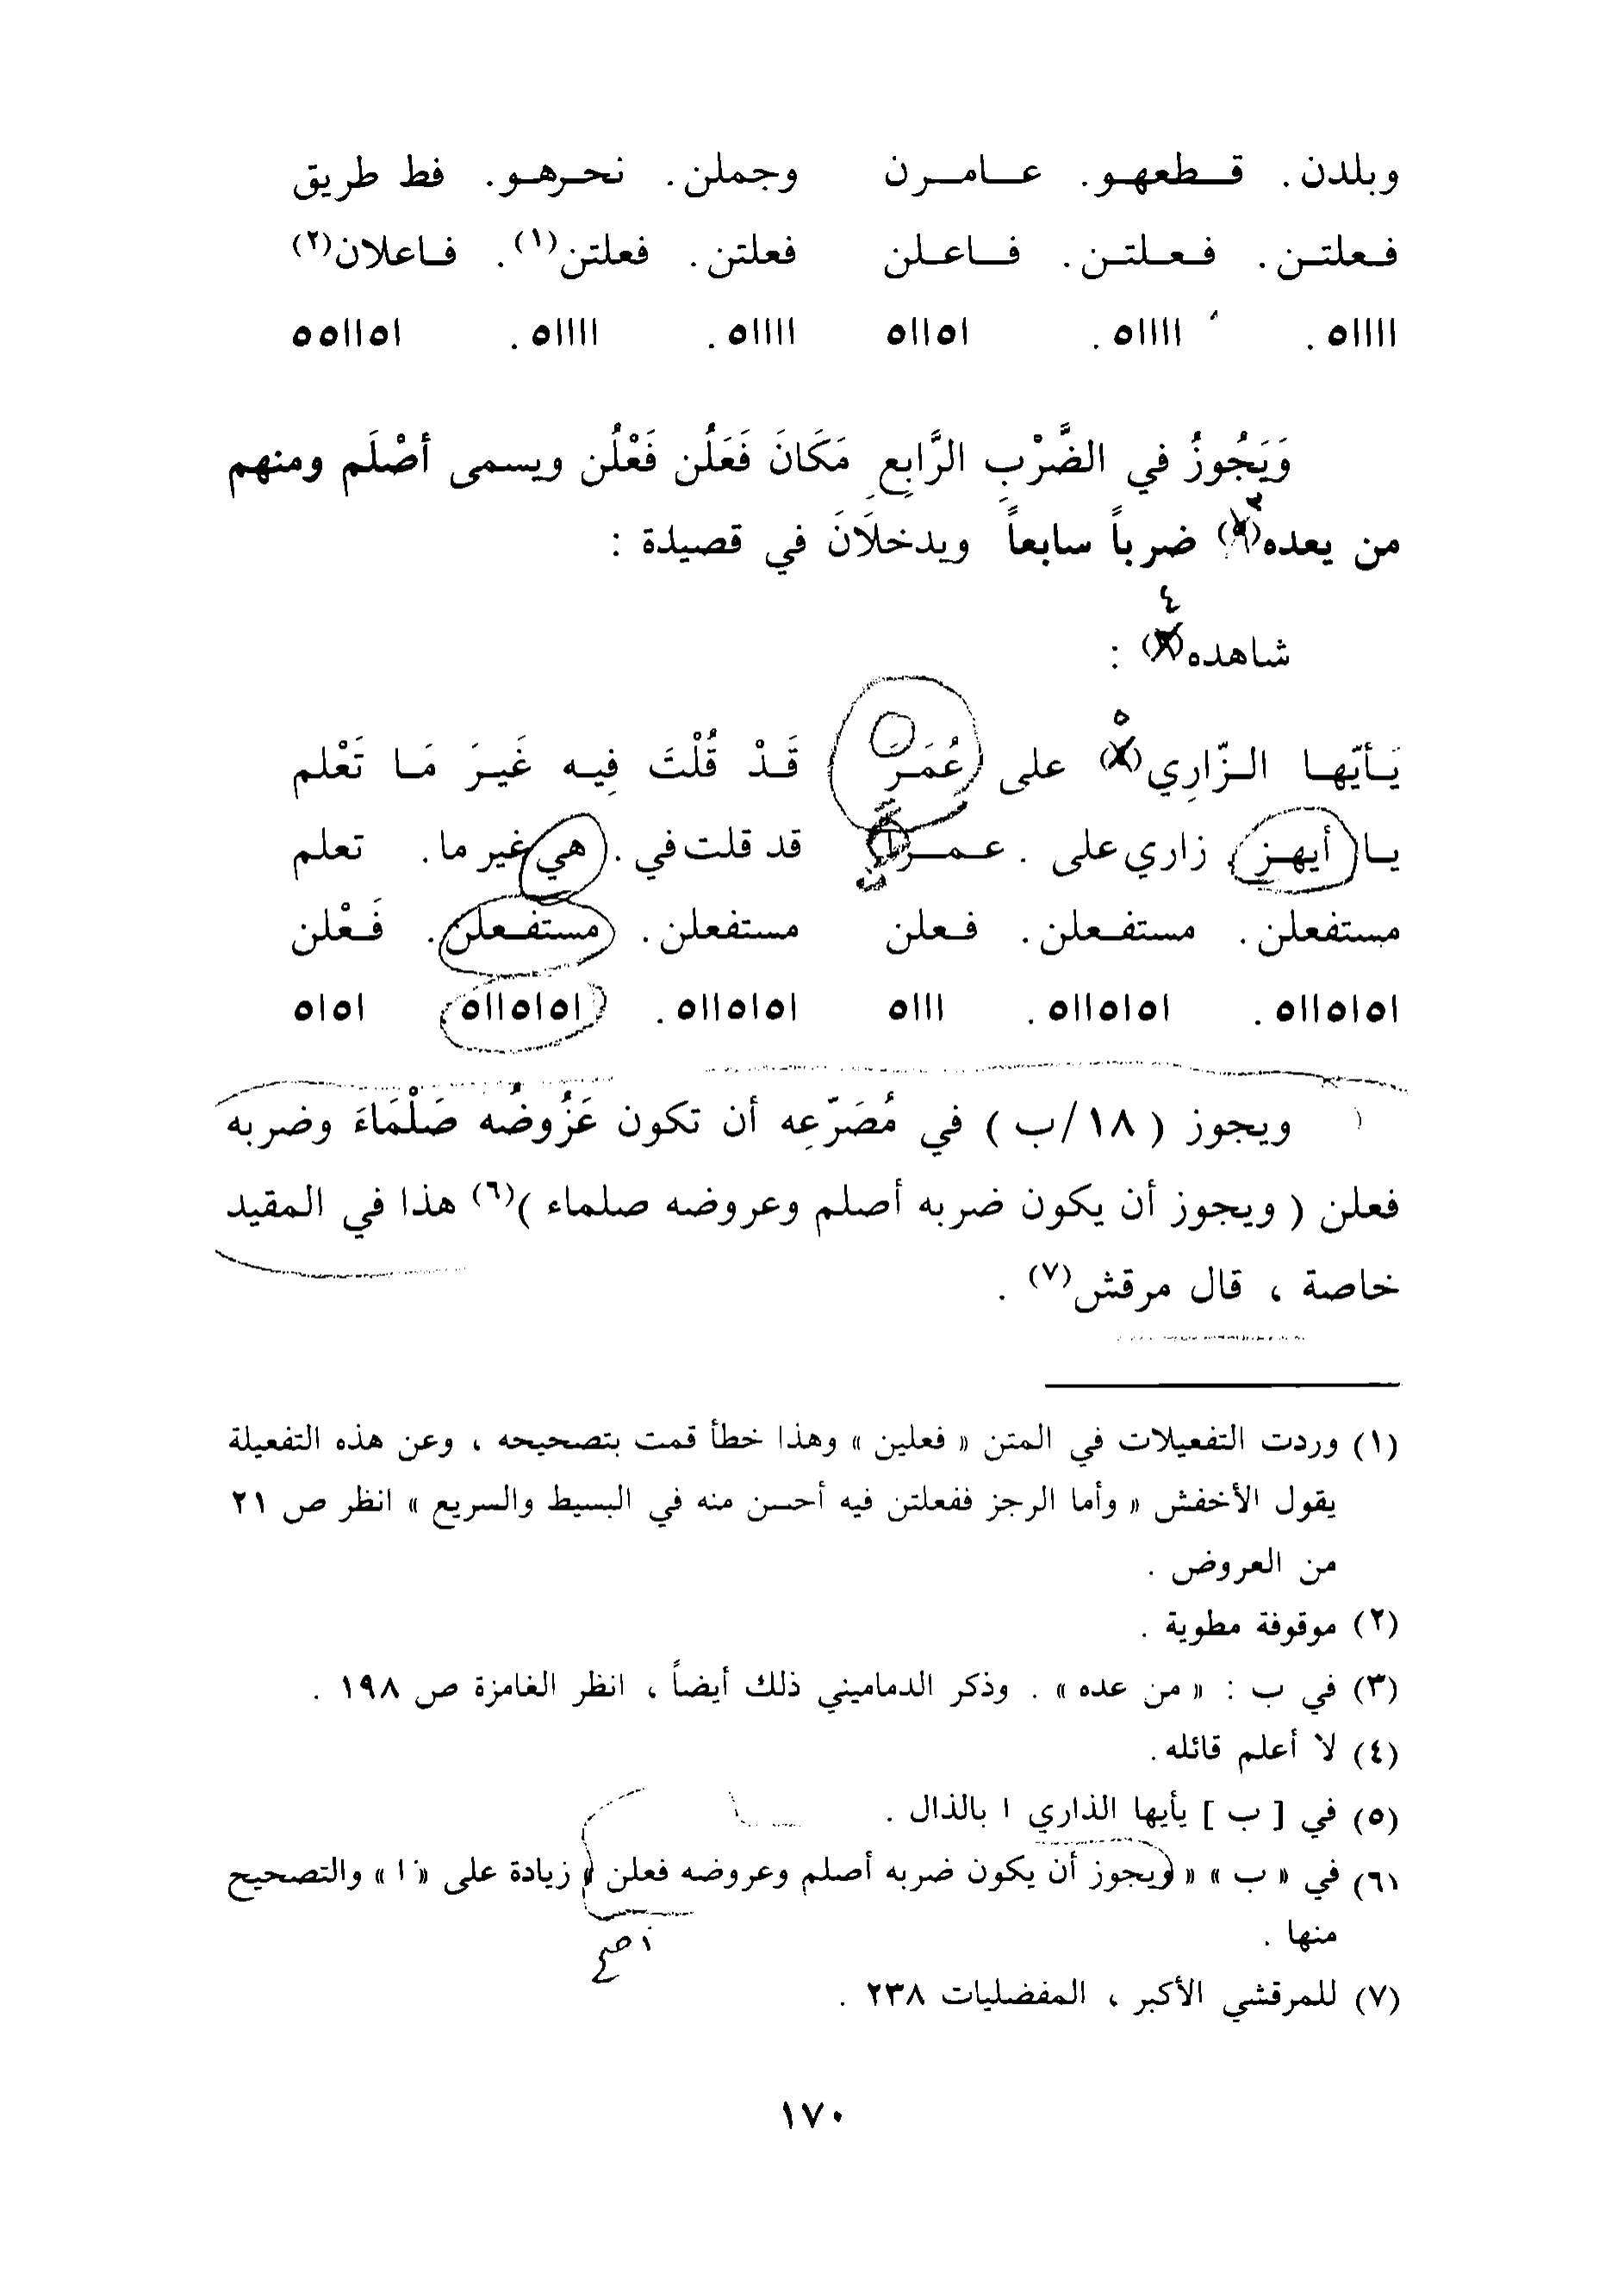 وبلدن . قـطعهـو . عـامـرن وجملن . نحـرهـو . فط طريق
فـعلتـن . فـعـلتـن . فـاعـلن فعلتن . فعلتن(١) . فـاعلان(٢)
ااااه . ااااه . اهااه ااااه . ااااه . اهااهه
وَيَجُوزُ في الضَّرْبِ الرَّابِعِ مَكَانَ فَعَلُن فَعْلُن ويسمى أصْلَم ومنهم
من يعده(٣) ضرباً سابعاً ويدخلَانَ في قصيدة :
شاهده(٤) :
يَـأيّهـا الـزّارِي(٥) على عُمَـرَ قَـدْ قُلْتَ فِيـه غَيـرَ مَـا تَعْلم
يـا أيهـز . زاري على . عـمـرن قد قلت في . هي غير ما . تعلم
مستفعلن . مستفـعلن . فـعلن مستفعلن . مستفـعلن . فَـعْلن
اهاهااه . اهاهااه . اااه اهاهااه . اهاهااه اهاه
ويجوز ( ١٨/ب ) في مُصَرّعِه أن تكون عَرُوضُه صَلْمَاءَ وضربه
فعلن ( ويجوز أن يكون ضربه أصلم وعروضه صلماء )(٦) هذا في المقيد
خاصة ، قال مرقش(٧) .
(١) وردت التفعيلات في المتن « فعلين » وهذا خطأ قمت بتصحيحه ، وعن هذه التفعيلة
يقول الأخفش « وأما الرجز ففعلتن فيه أحسن منه في البسيط والسريع » انظر ص ٢١
من العروض .
(٢) موقوفة مطوية .
(٣) في ب : « من عده » . وذكر الدماميني ذلك أيضاً ، انظر الغامزة ص ١٩٨ .
(٤) لا أعلم قائله .
(٥) في [ ب ] يأيها الذاري ا بالذال .
(٦) في « ب » « ويجوز أن يكون ضربه أصلم وعروضه فعلن » زيادة على « ا » والتصحيح
منها .
(٧) للمرقشي الأكبر ، المفضليات ٢٣٨ .
١٧٠